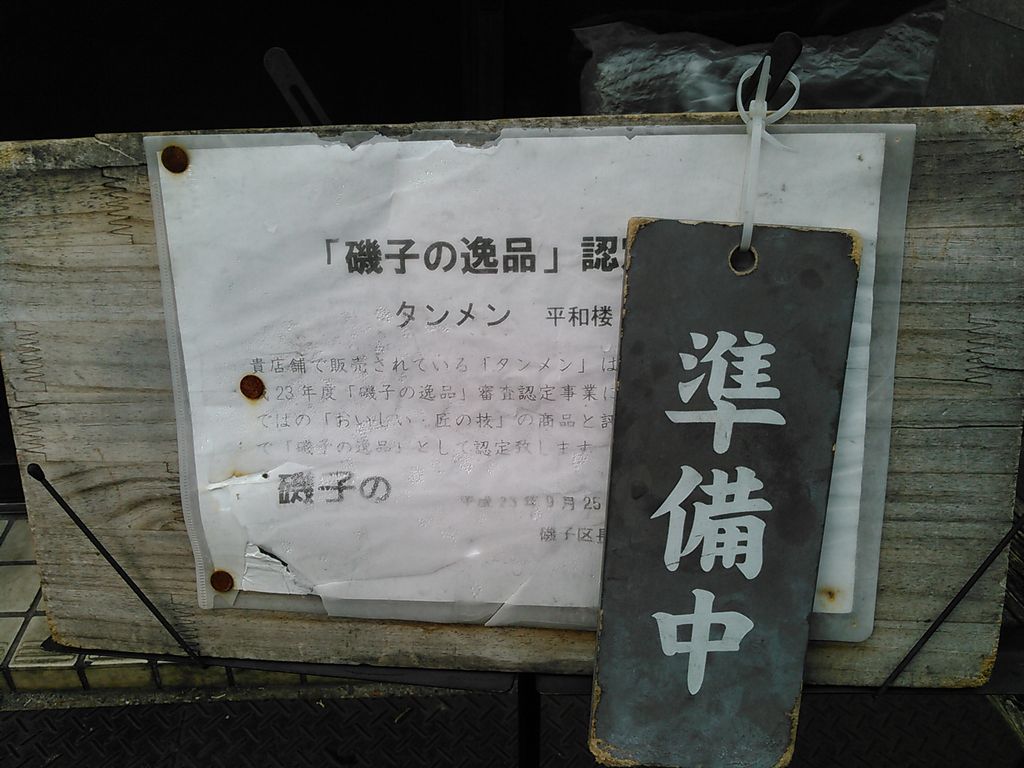 「磯子の逸品」認
タンメン 平和楼
貴店舗で販売されている「タンメン」は
23年度「磯子の逸品」審査認定事業に
ではの「おいしい・匠の技」の商品と
で「磯子の逸品」として認定致します
磯子の
平成23年9月25
磯子区長
準備中